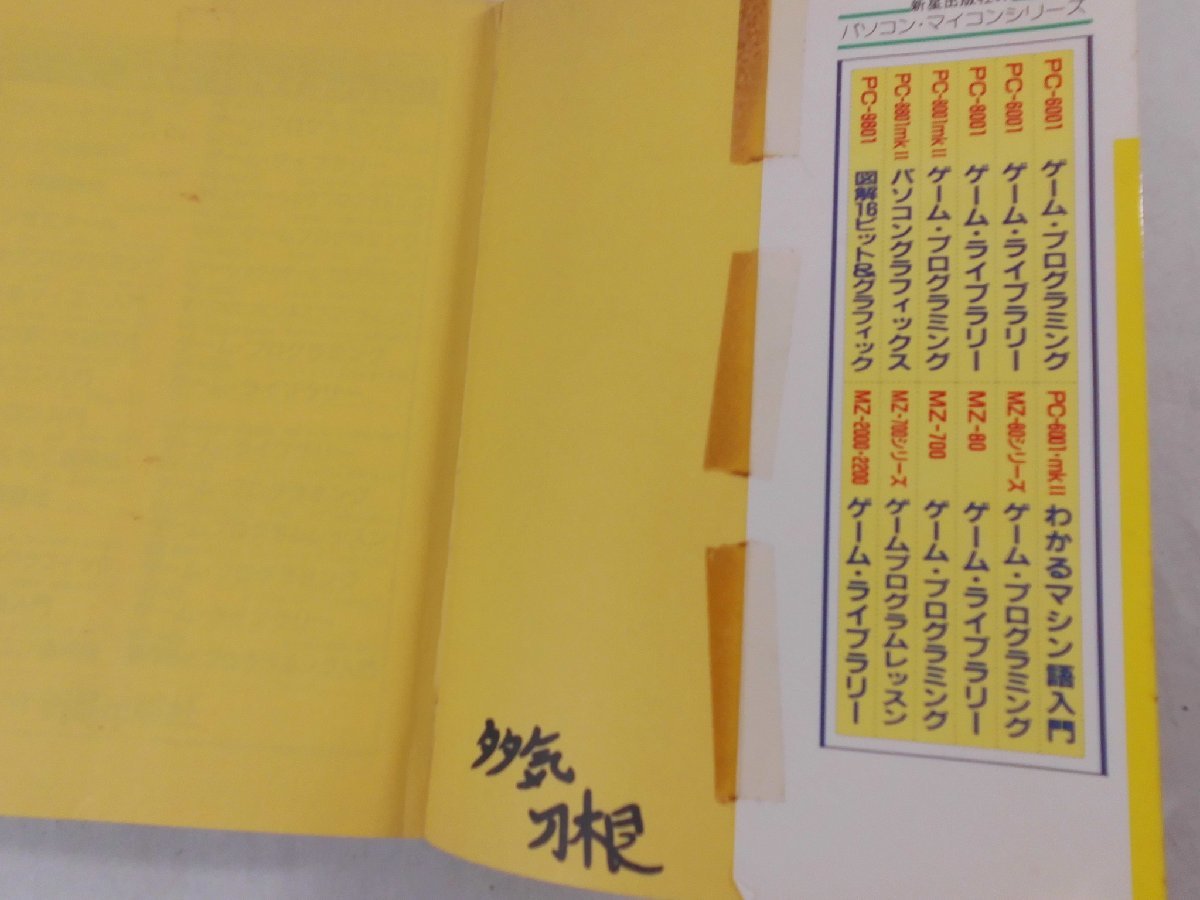 新星出版社
パソコン・マイコンシリーズ
PC-6001 ゲーム・プログラミング
PC-6001 ゲーム・ライブラリー
PC-8001 ゲーム・ライブラリー
PC-8001mkII ゲーム・プログラミング
PC-8801mkII パソコングラフィックス
PC-9801 図解16ビット&グラフィック
PC-6001・mkII わかるマシン語入門
MZ-80シリーズ ゲーム・プログラミング
MZ-80 ゲーム・ライブラリー
MZ-700 ゲーム・プログラミング
MZ-700シリーズ ゲームプログラムレッスン
MZ-2000・2200 ゲーム・ライブラリー
多気
刀根